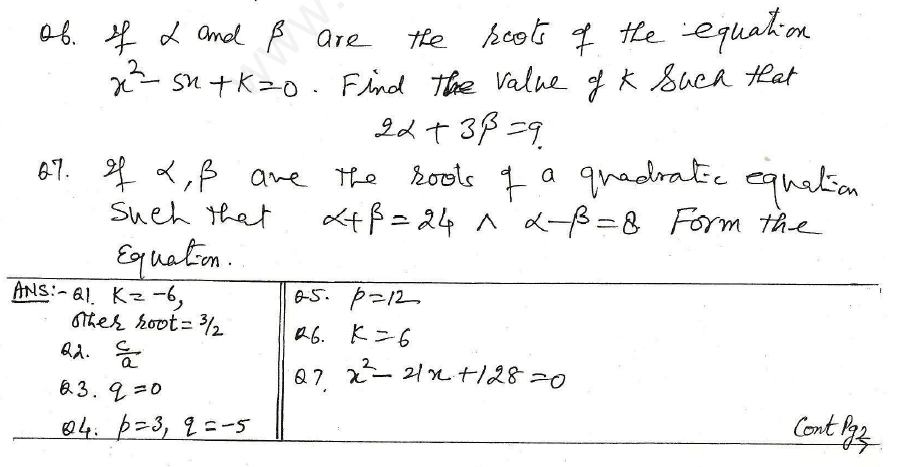 Q6. If α and β are the roots of the equation
x² - 5x + K = 0. Find the value of K such that
2α + 3β = 9.
Q7. If α, β are the roots of a quadratic equation
such that α+β = 24 ∧ α-β = 8 Form the
Equation.
ANS:- Q1. K = -6,
other root = 3/2
Q2. c/a
Q3. q = 0
Q4. p = 3, q = -5
Q5. p = 12
Q6. K = 6
Q7. x² - 21x + 128 = 0
Cont Pg2